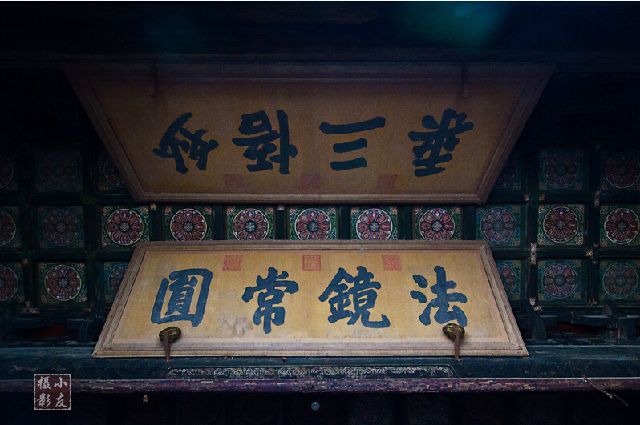 妙悟三乘
法鏡常圓
小友
摄影